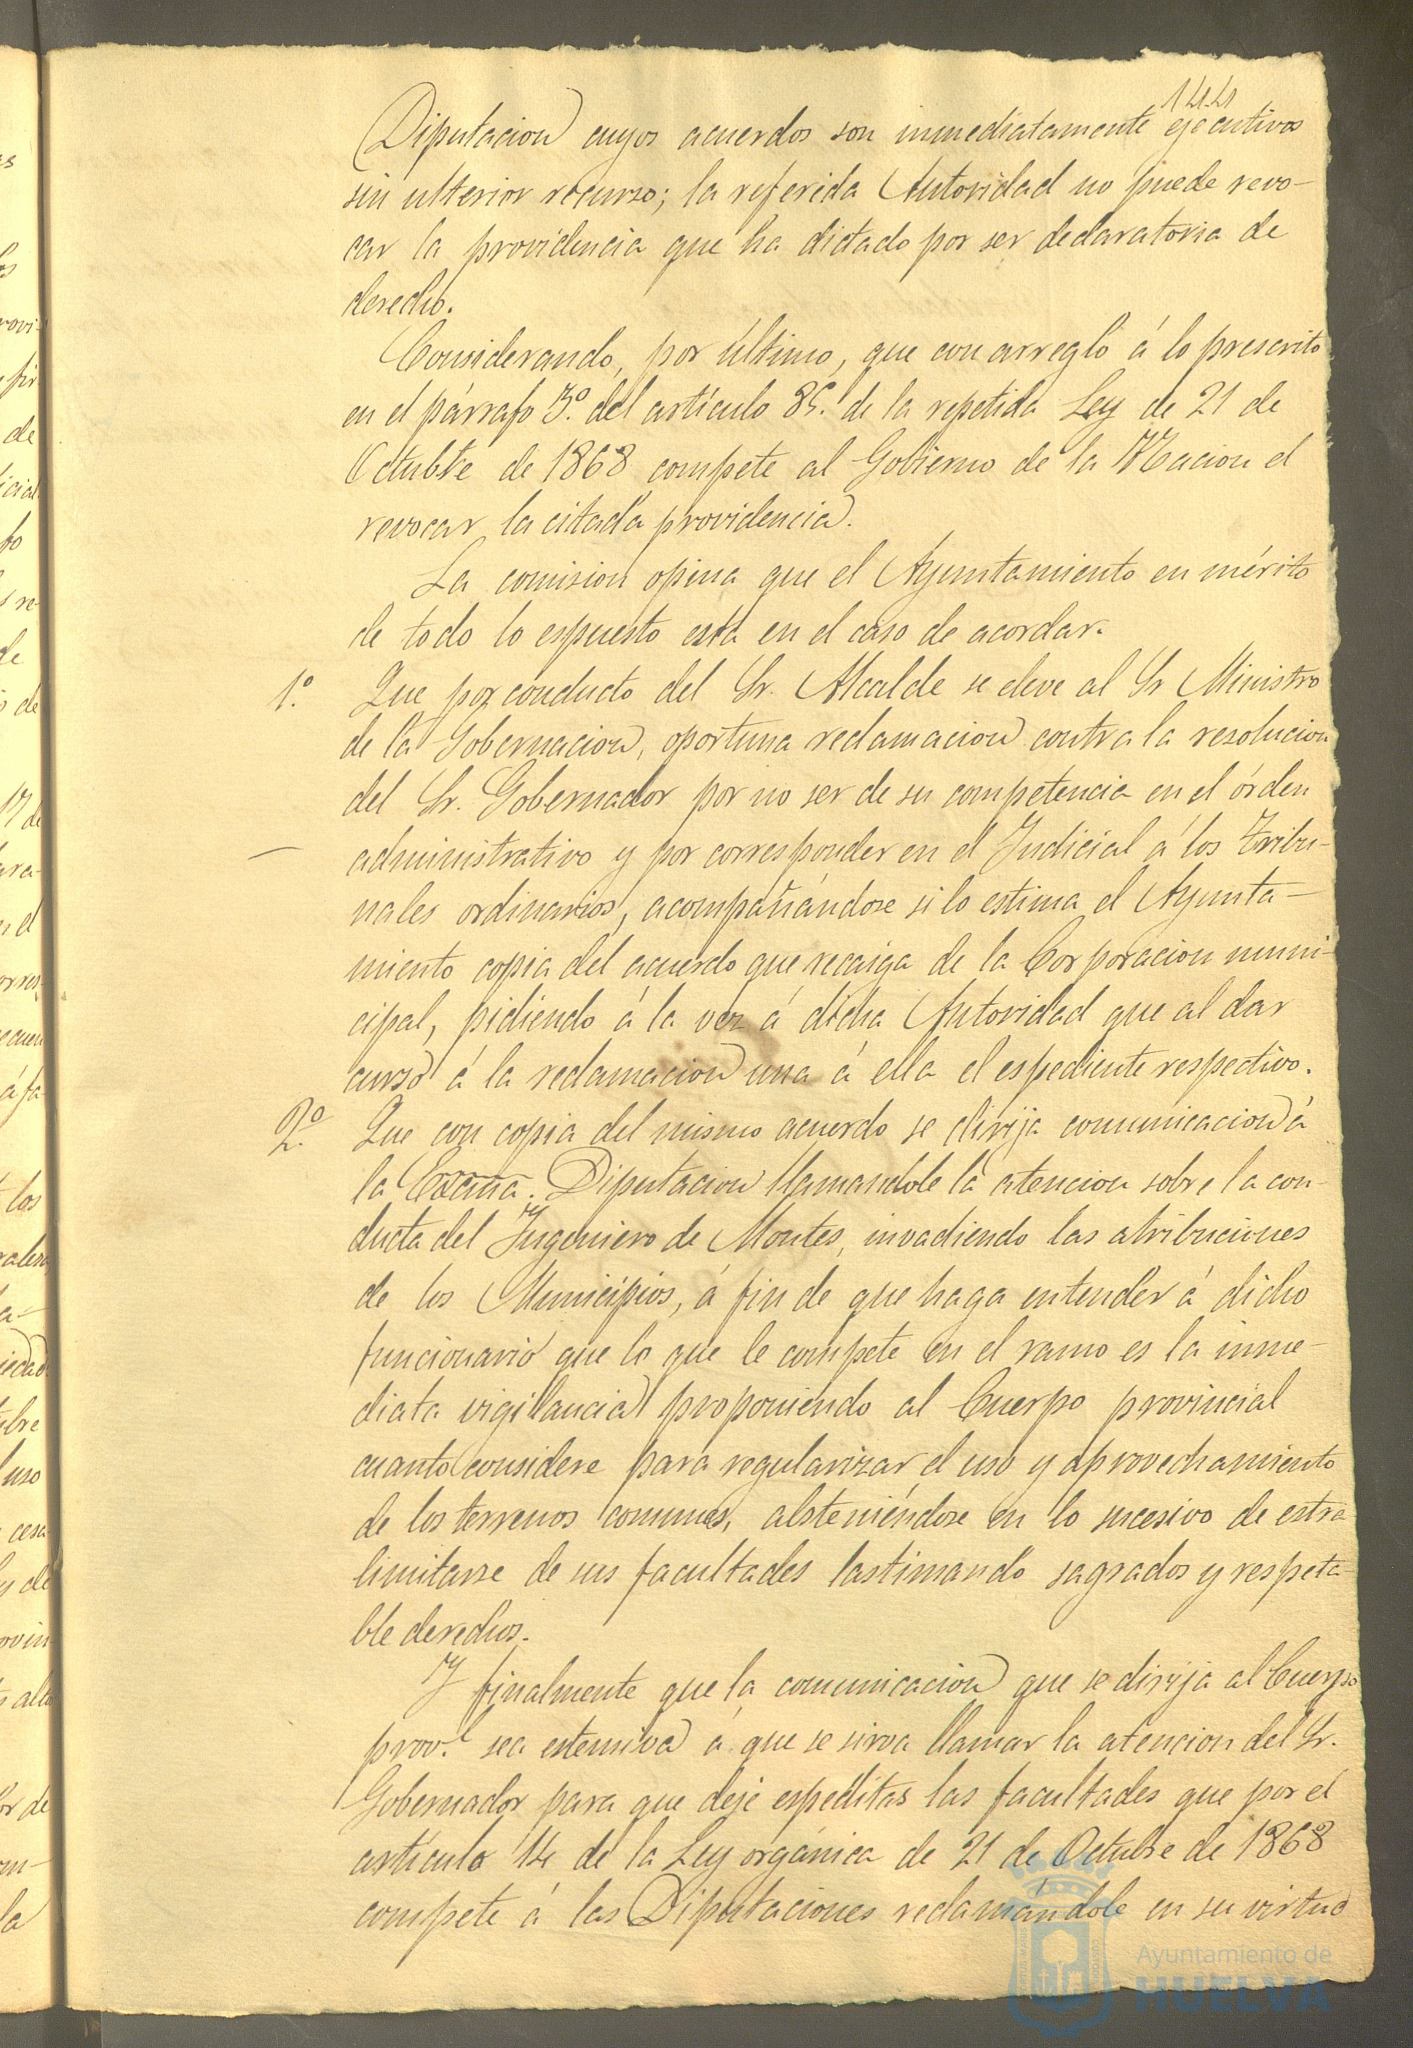 144
Diputacion cuyos acuerdos son inmediatamente ejecutivos
sin ulterior recurso; la referida Autoridad no puede revo-
car la providencia que ha dictado por ser declaratoria de
derecho.
Considerando, por último, que con arreglo á lo prescrito
en el párrafo 3º. del artículo 85. de la repetida Ley de 21 de
Octubre de 1868 compete al Gobierno de la Nacion el
revocar la citada providencia.
La comision opina que el Ayuntamiento en mérito
de todo lo espuesto está en el caso de acordar.
1.º Que por conducto del Sr. Alcalde se eleve al Sr Ministro
de la Gobernacion, oportuna reclamacion contra la resolucion
del Sr. Gobernador por no ser de su competencia en el órden
administrativo y por corresponder en el Judicial á los Tribu-
nales ordinarios, acompañándose si lo estima el Ayunta-
miento copia del acuerdo que recaiga de la Corporacion muni-
cipal, pidiendo á la vez á dicha Autoridad que al dar
curso á la reclamacion una á ella el espediente respectivo.
2.º Que con copia del mismo acuerdo se dirija comunicacion á
la Excma. Diputacion llamandole la atencion sobre la con-
ducta del Ingeniero de Montes, invadiendo las atribuciones
de los Municipios, á fin de que haga entender á dicho
funcionario que lo que le compete en el ramo es la inme-
diata vigilancia proponiendo al Cuerpo provincial
cuanto considere para regularizar el uso y aprovechamiento
de los terrenos comunes, absteniéndose en lo sucesivo de estra
limitarse de sus facultades lastimando sagrados y respeta-
ble derechos.
Y finalmente que la comunicacion que se dirija al Cuerpo
prov.l sea estensiva á que se sirva llamar la atencion del Sr.
Gobernador para que deje espeditas las facultades que por el
artículo 14 de la Ley orgánica de 21 de Octubre de 1868
compete á las Diputaciones reclamándole en su virtud
Ayuntamiento de
HUELVA